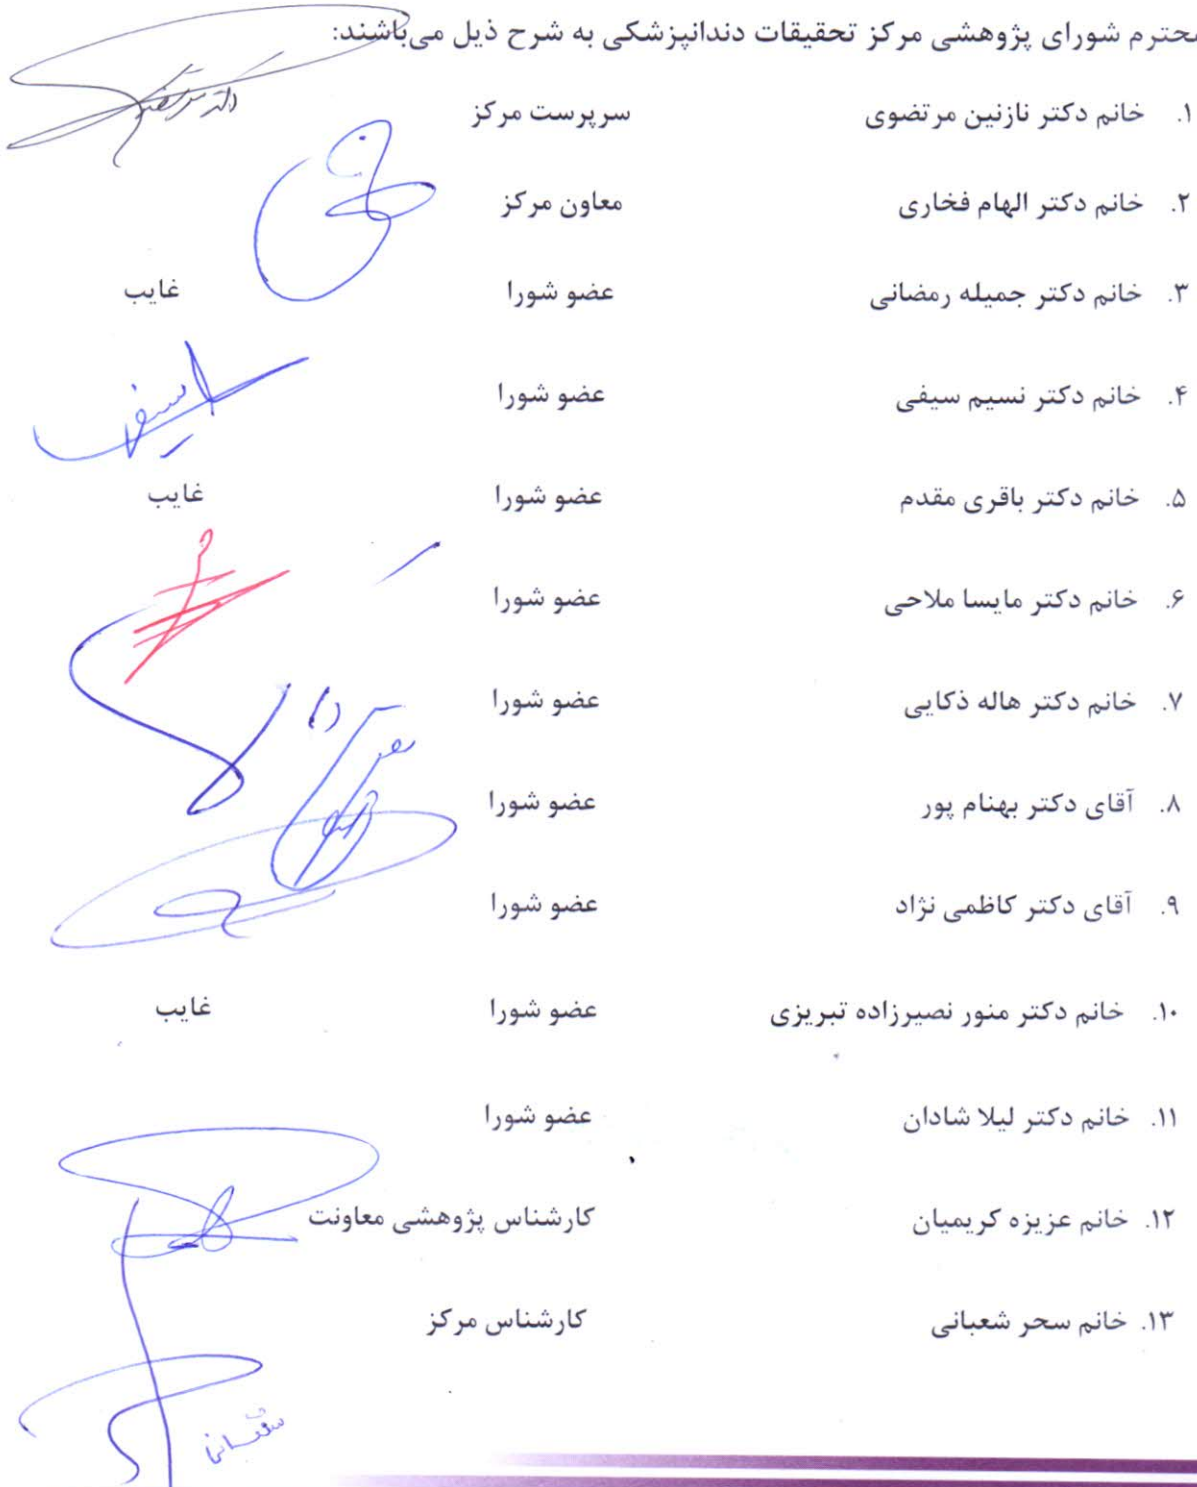 محترم شورای پژوهشی مرکز تحقیقات دندانپزشکی به شرح ذیل می‌باشند:
۱. خانم دکتر نازنین مرتضوی سرپرست مرکز
۲. خانم دکتر الهام فخاری معاون مرکز
۳. خانم دکتر جمیله رمضانی عضو شورا غایب
۴. خانم دکتر نسیم سیفی عضو شورا
۵. خانم دکتر باقری مقدم عضو شورا غایب
۶. خانم دکتر مایسا ملاحی عضو شورا
۷. خانم دکتر هاله ذکایی عضو شورا
۸. آقای دکتر بهنام پور عضو شورا
۹. آقای دکتر کاظمی نژاد عضو شورا
۱۰. خانم دکتر منور نصیرزاده تبریزی عضو شورا غایب
۱۱. خانم دکتر لیلا شادان عضو شورا
۱۲. خانم عزیزه کریمیان کارشناس پژوهشی معاونت
۱۳. خانم سحر شعبانی کارشناس مرکز
شعبانی